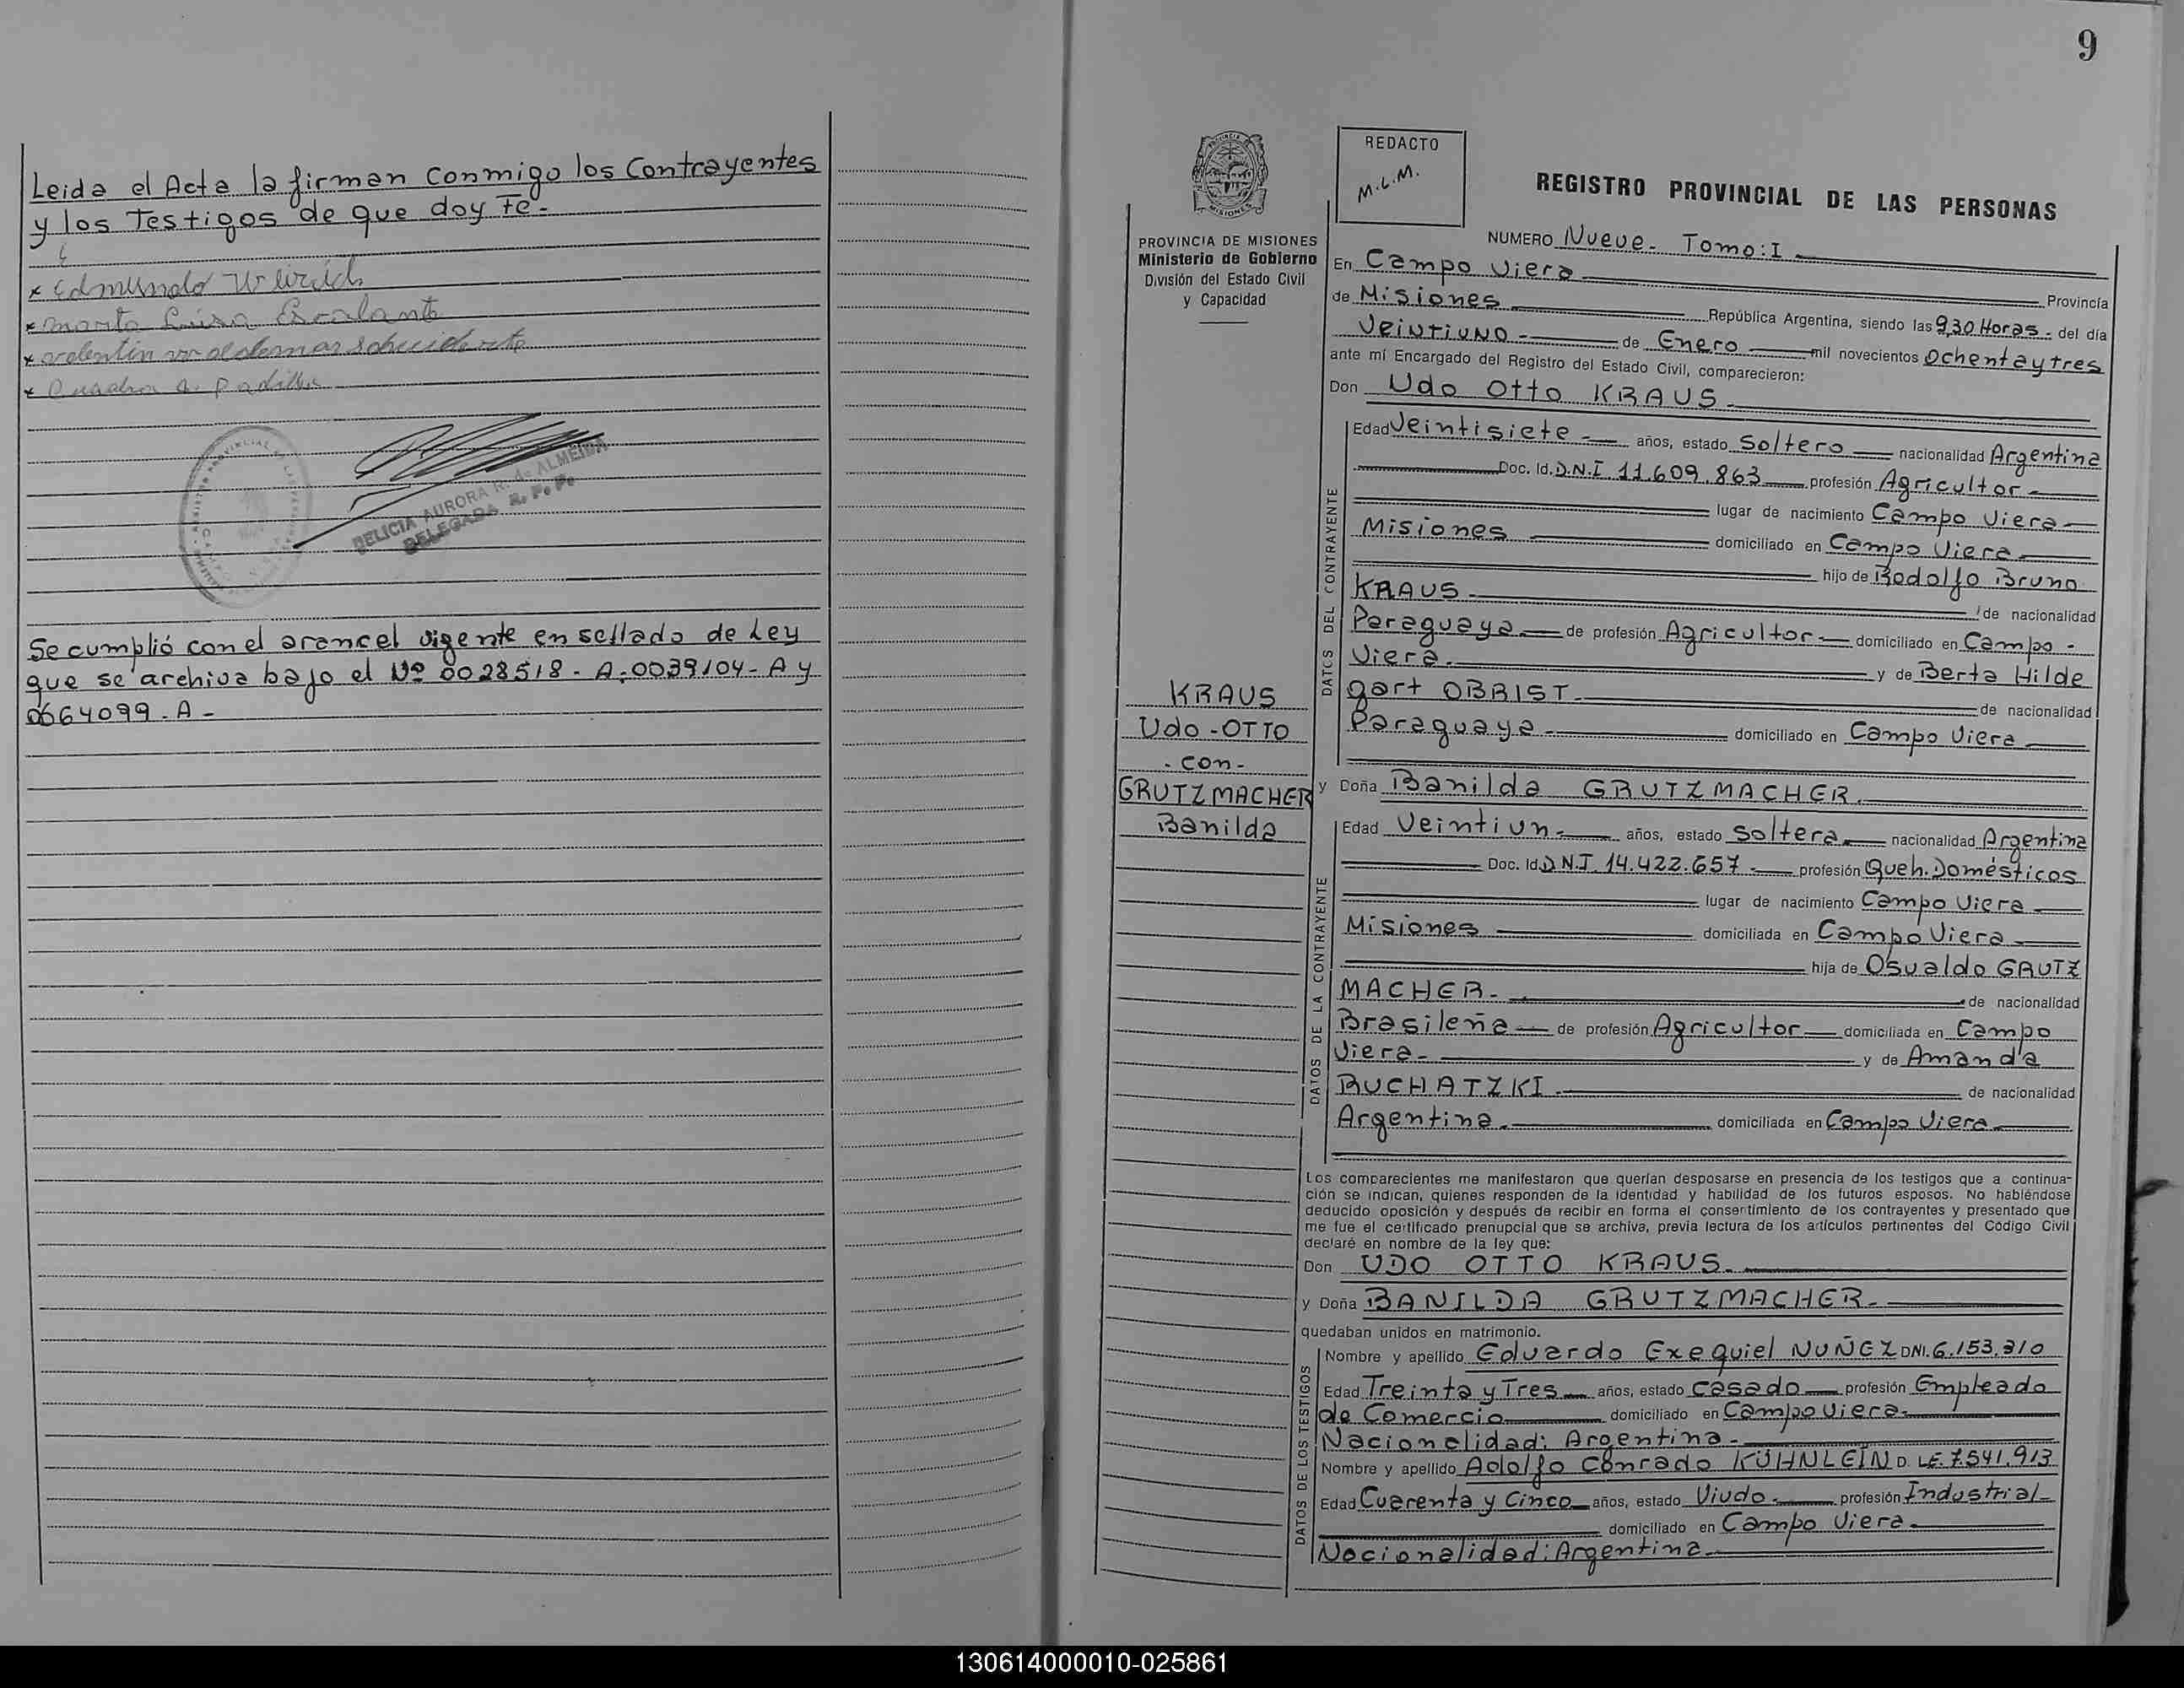 Leida el Acta la firman conmigo los Contrayentes
y los Testigos de que doy Fe-
x Edmundo
x Marta Luisa Escalante
x Valentin
x padilla
DELICIA AURORA R. de ALMEIDA
DELEGADA R. P. P.
Se cumplió con el arancel vigente en sellado de Ley
que se archiva bajo el Nº 0028518-A;0039104-A y
0664099.A-
9
REDACTO
M.L.M.
REGISTRO PROVINCIAL DE LAS PERSONAS
PROVINCIA DE MISIONES
Ministerio de Gobierno
División del Estado Civil
y Capacidad
KRAUS
Udo-OTTO
-con-
GRUTZMACHER
Banilda
NUMERO Nueve- Tomo:I
En Campo Viera Provincia
de Misiones República Argentina, siendo las 9,30 Horas- del día
Veintiuno- de Enero mil novecientos Ochentaytres
ante mí Encargado del Registro del Estado Civil, comparecieron:
Don Udo Otto KRAUS-
DATOS DEL CONTRAYENTE
Edad Veintisiete- años, estado Soltero nacionalidad Argentina
Doc. Id. D.N.I. 11.609.863 profesión Agricultor-
lugar de nacimiento Campo Viera-
Misiones domiciliado en Campo Viera
hijo de Rodolfo Bruno
KRAUS- de nacionalidad
Paraguaya- de profesión Agricultor- domiciliado en Campo-
Viera. y de Berta Hilde
gart OBRIST- de nacionalidad
Paraguaya- domiciliado en Campo Viera
y Doña Banilda GRUTZMACHER.
DATOS DE LA CONTRAYENTE
Edad Veintiun- años, estado Soltera nacionalidad Argentina
Doc. Id. D.N.I. 14.422.657- profesión Queh.Domésticos
lugar de nacimiento Campo Viera
Misiones domiciliada en Campo Viera
hija de Osvaldo GRUTZ
MACHER- de nacionalidad
Brasileña de profesión Agricultor domiciliada en Campo
Viera- y de Amanda
BUCHATZKI- de nacionalidad
Argentina. domiciliada en Campo Viera
Los comparecientes me manifestaron que querían desposarse en presencia de los testigos que a continua-
ción se indican, quienes responden de la identidad y habilidad de los futuros esposos. No habiéndose
deducido oposición y después de recibir en forma el consentimiento de los contrayentes y presentado que
me fue el certificado prenupcial que se archiva, previa lectura de los artículos pertinentes del Código Civil
declaré en nombre de la ley que:
Don UDO OTTO KRAUS-
y Doña BANILDA GRUTZMACHER-
quedaban unidos en matrimonio.
DATOS DE LOS TESTIGOS
Nombre y apellido Eduardo Exequiel NUÑEZ DNI.6.153.310
Edad Treinta y Tres años, estado Casado profesión Empleado
de Comercio domiciliado en Campo Viera-
Nacionalidad: Argentina-
Nombre y apellido Adolfo Conrado KÜHNLEIN D. LE.7.541.913
Edad Cuarenta y Cinco años, estado Viudo- profesión Industrial-
domiciliado en Campo Viera-
Nacionalidad:Argentina-
130614000010-025861